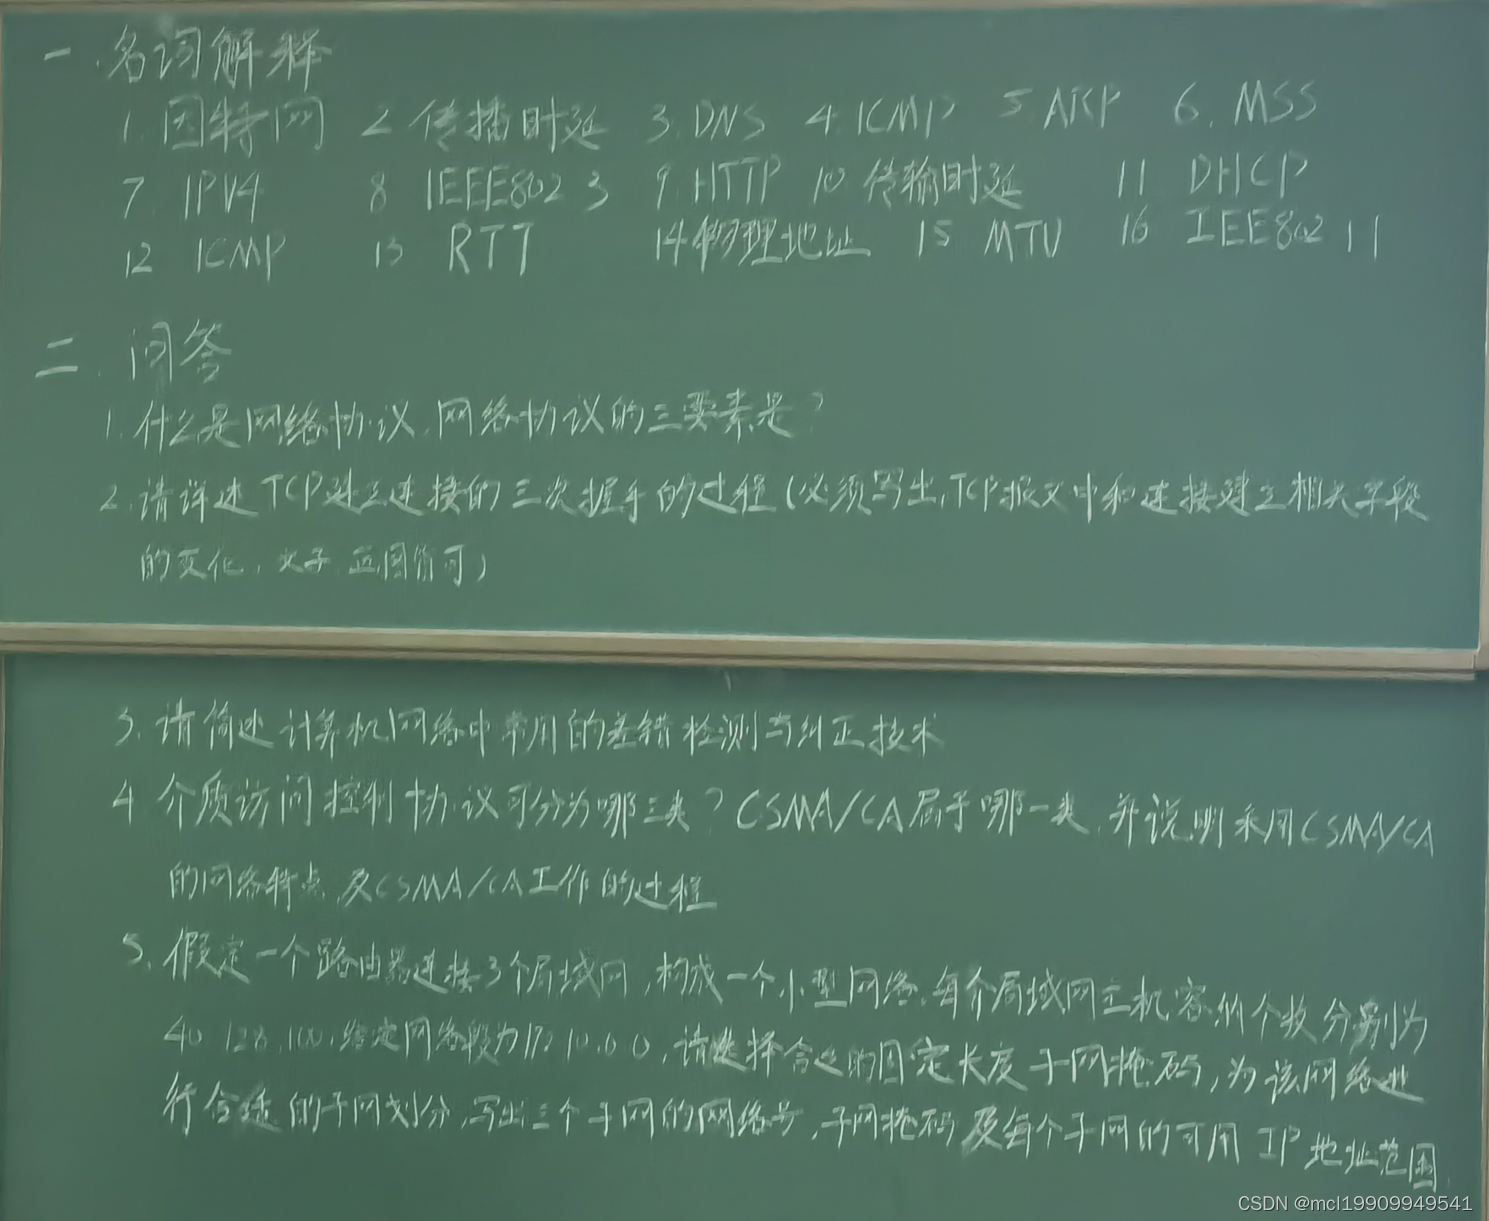 一.名词解释
1.因特网 2 传播时延 3.DNS 4.ICMP 5.ARP 6.MSS
7 IPV4 8 IEEE802 3 9.HTTP 10 传输时延 11 DHCP
12 ICMP 13 RTT 14物理地址 15 MTU 16 IEE802 11
二.问答
1.什么是网络协议.网络协议的三要素是?
2.请详述TCP建立连接的三次握手的过程(必须写出,TCP报文中和连接建立相关字段
的变化.文字 画图皆可)
3.请简述计算机网络中常用的差错检测与纠正技术
4 介质访问控制协议可分为哪三类?CSMA/CA属于哪一类.并说明采用CSMA/CA
的网络特点 及CSMA/CA工作的过程
5.假定一个路由器连接3个局域网,构成一个小型网络.每个局域网主机容纳个数分别为
40 128.100.给定网络段为172 10.0 0,请选择合适的固定长度子网掩码,为该网络进
行合适的子网划分,写出三个子网的网络号,子网掩码及每个子网的可用IP地址范围.
CSDN @mcl19909949541